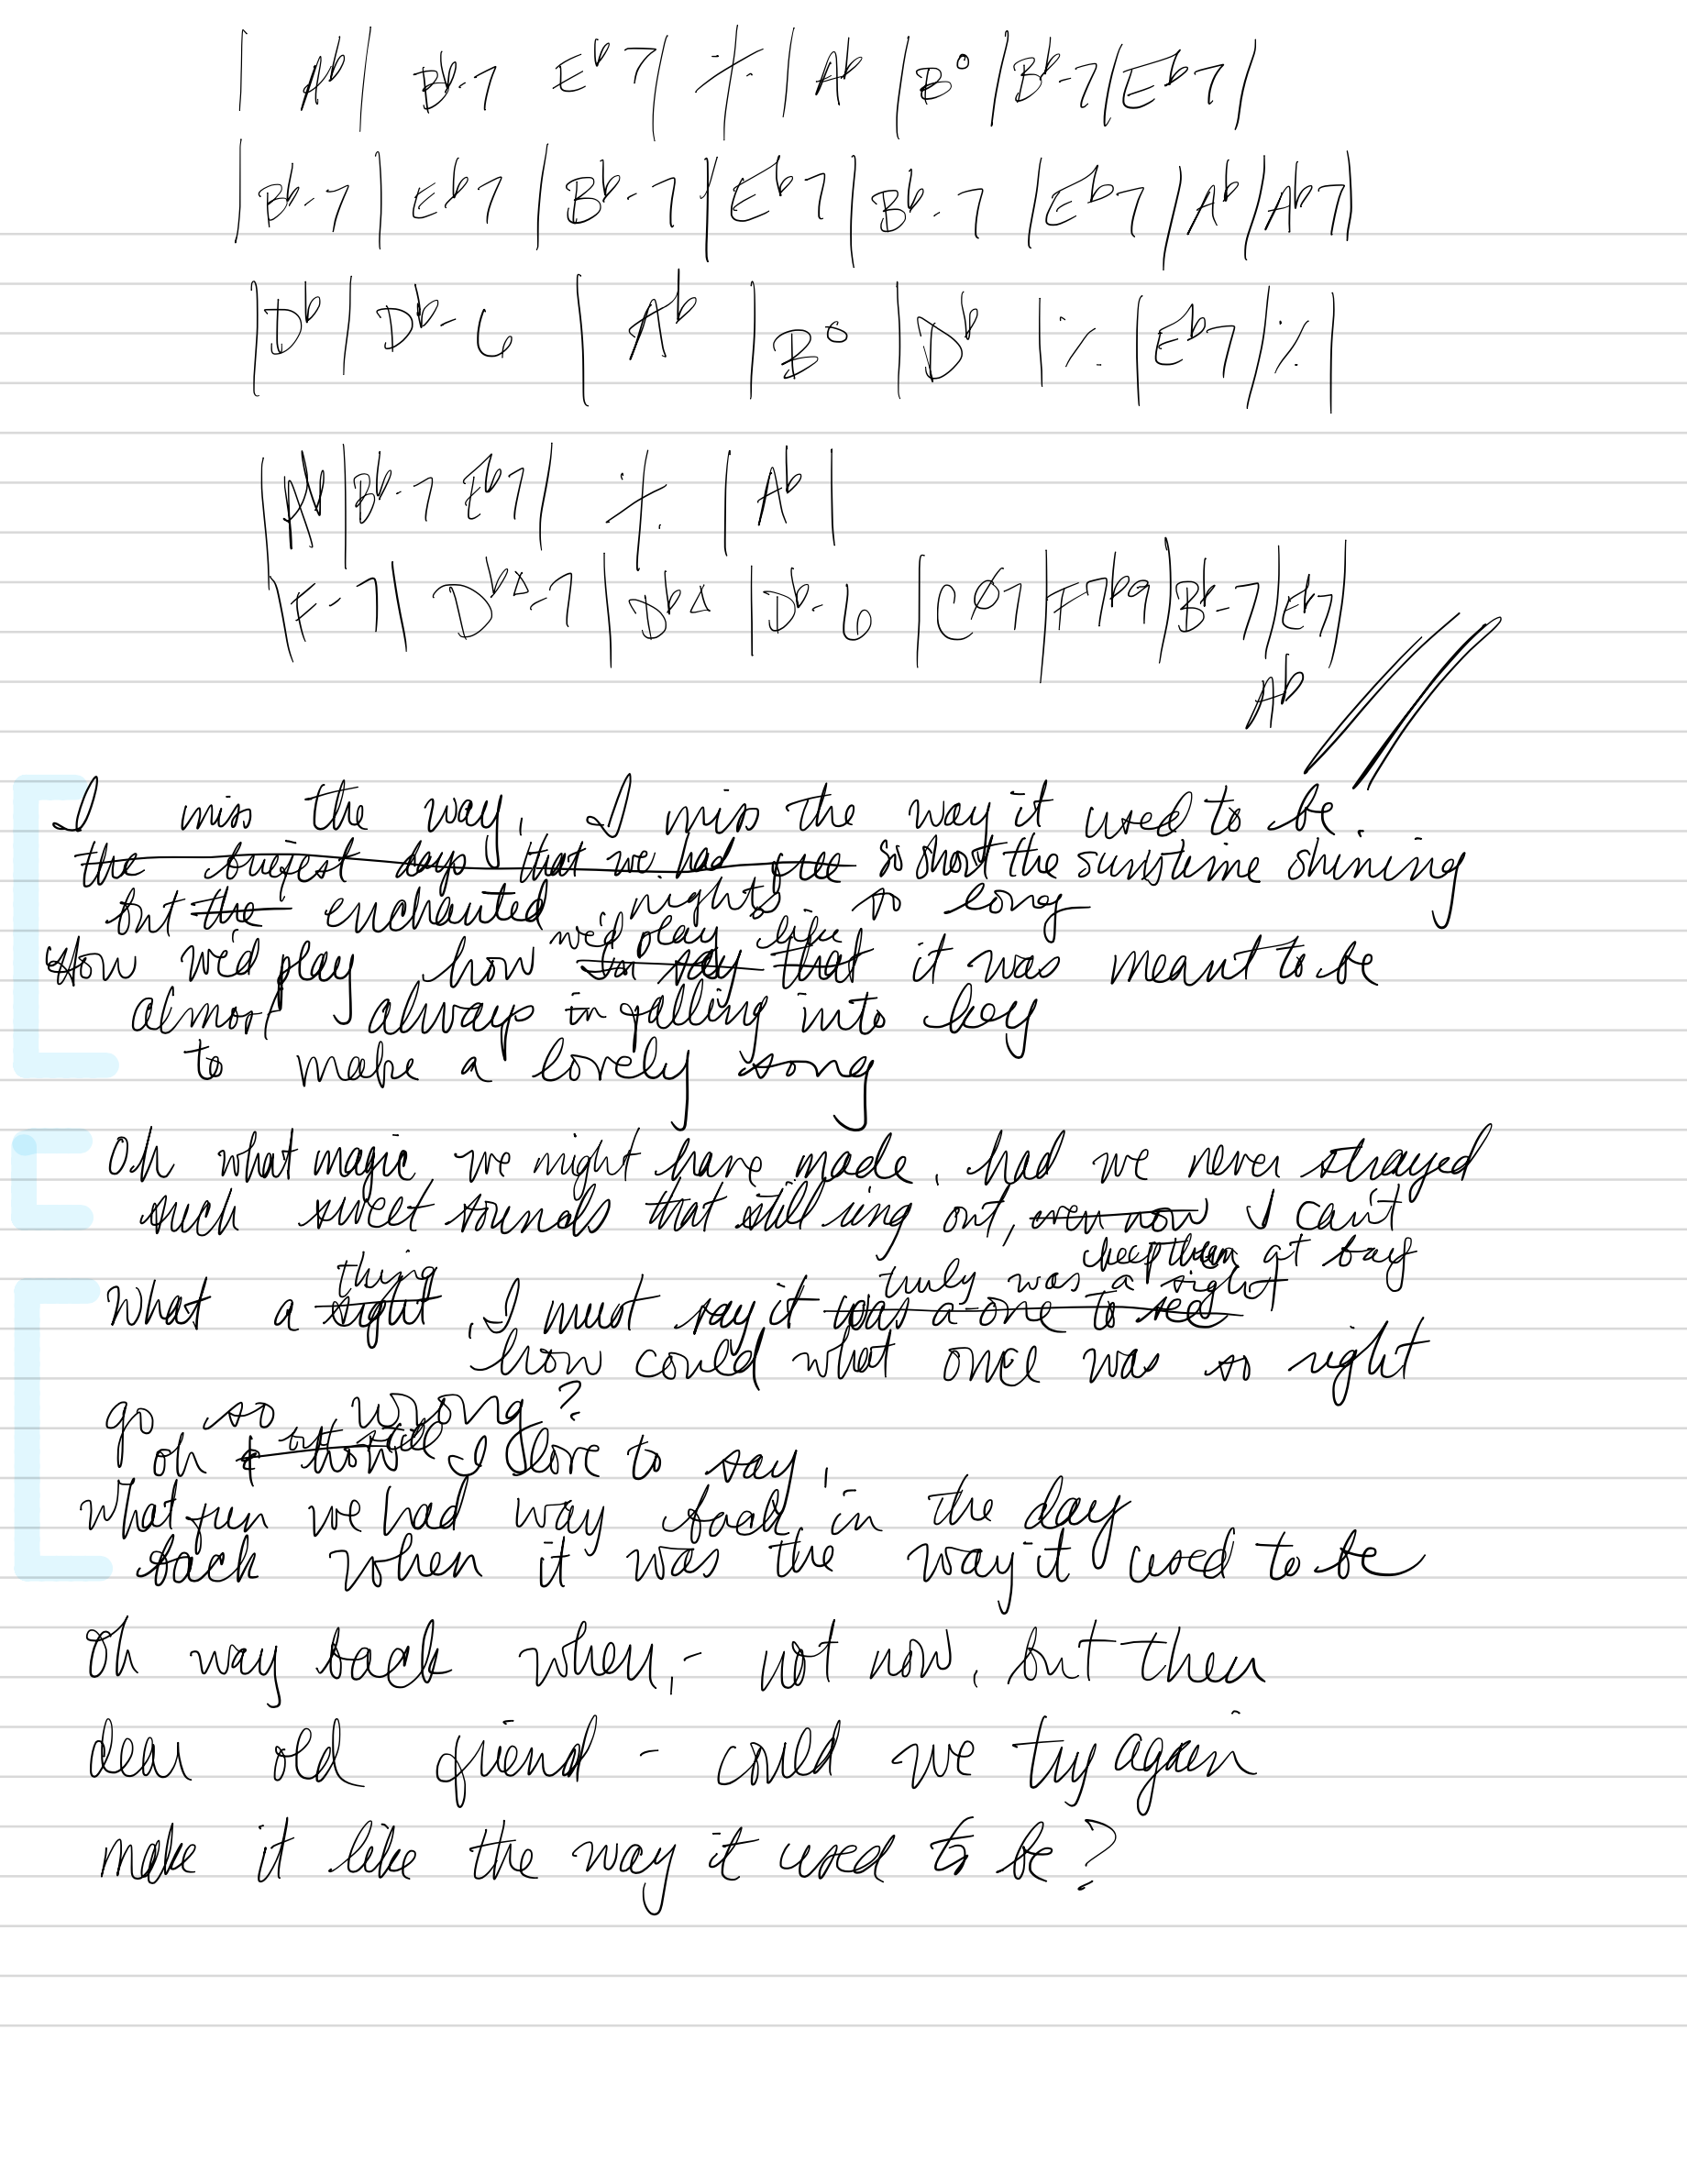 | Ab | Bb-7 Eb7 | ٪ | Ab | B° | Bb-7 | Eb7 |
| Bb-7 | Eb7 | Bb-7 | Eb7 | Bb-7 | Eb7 | Ab | Ab7 |
| Db | Db-6 | Ab | B° | Db | ٪ | Eb7 | ٪ |
| Ab | Bb-7 Eb7 | ٪ | Ab |
| F-7 | DbΔ-7 | DbΔ | Db-6 | CØ7 | F7b9 | Bb-7 | Eb7 |
Ab //
I miss the way, I miss the way it used to be.
the briefest days that we had free so short the sunstime shining
but the enchanted nights so long
we'd play like
How we'd play how say that it was meant to be
almost always in falling into key
to make a lovely song
Oh what magic we might have made, had we never strayed
such sweet sounds that still ring out, even now I can't
keep them at bay
thing truly was a sight
What a sight, I must say it was a one to see
how could what once was so right
go so wrong?
but still
oh & how I love to say,
what fun we had way back in the day
back when it was the way it used to be
Oh way back when, - not now, but then
dear old friend - could we try again
make it like the way it used to be?